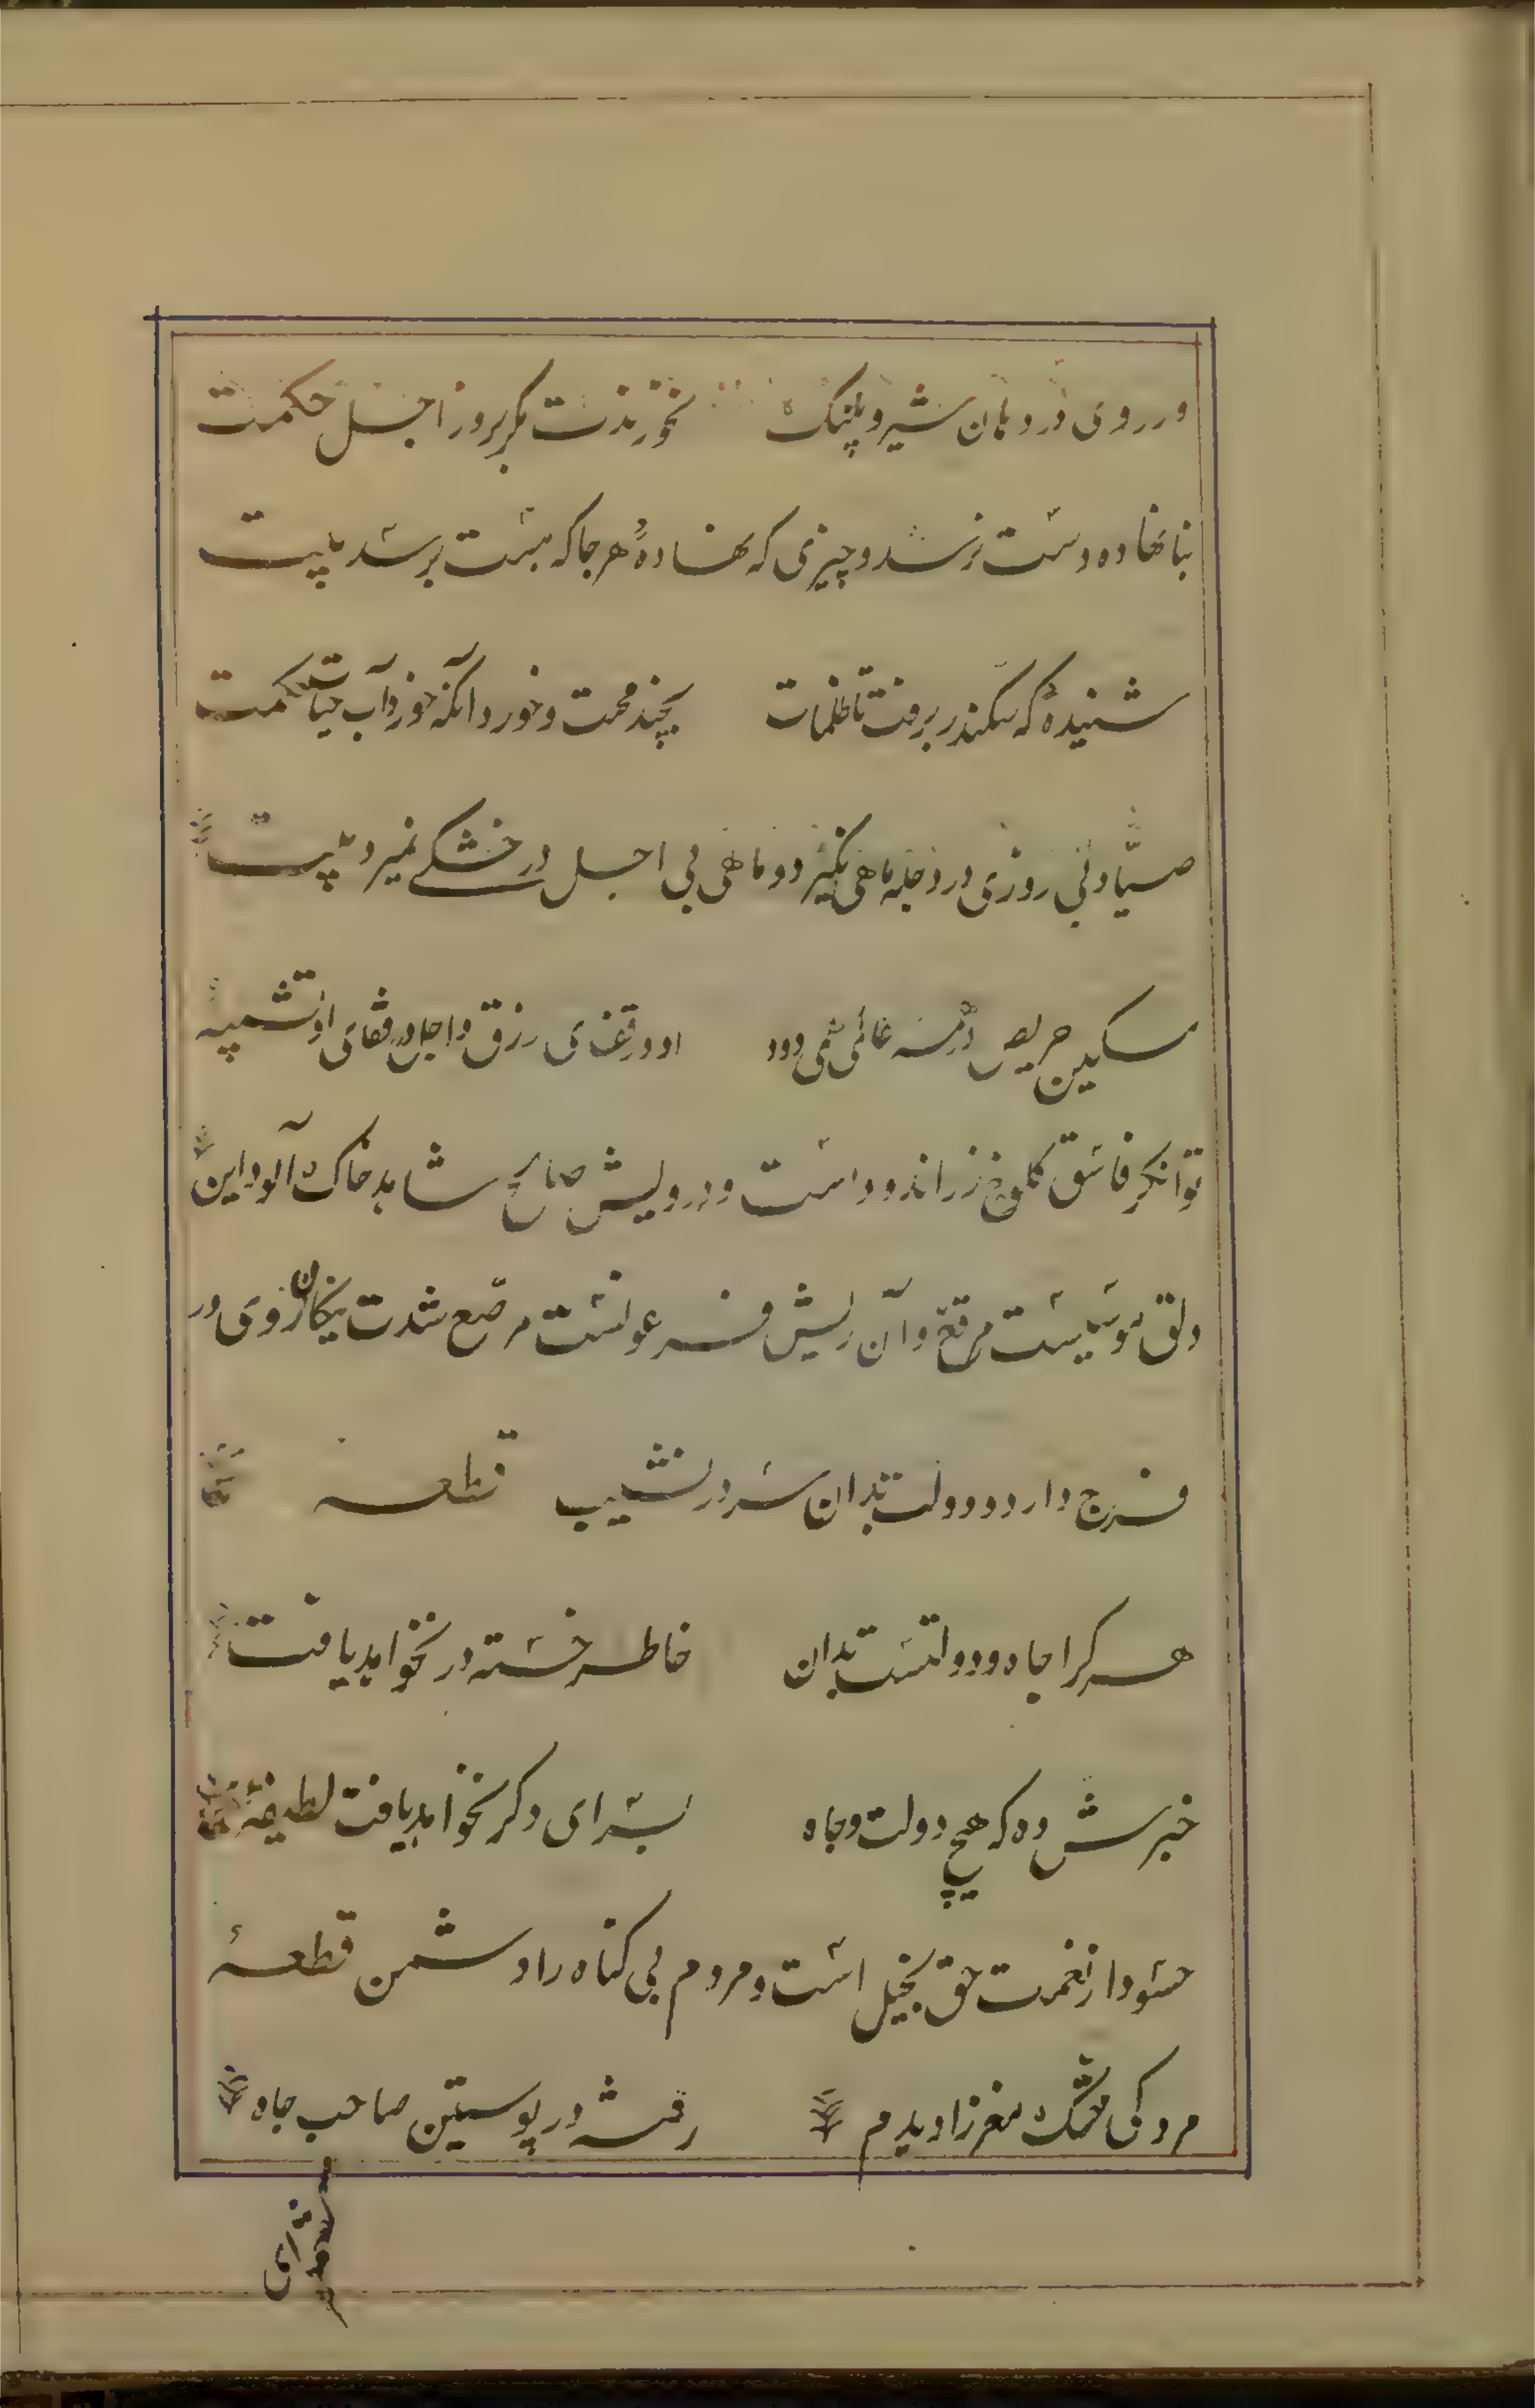 ور روی در دهان شیر و پلنک نخورندت مکر بروز اجل حکمت
بنانهاده دست نرسد و چیزی که نهاده هرجا که هست برسد بیت
شنیدهٔ که سکندر برفت تا ظلمات بچند محنت و خورد آنکه خورد آب حیات حکمت
صیّاد بی روزی در دجله ماهی نکیرد و ماهی بی اجل در خشکی نمیرد بیت
مسکین حریص در همه عالم همی دود او در قفای رزق و اجل در قفای او تنبیه
توانکر فاسق کلوخ زر اندود است و درویش صالح شاهد خاک آلود این
دلق موسیست مرقع و آن ریش فرعونست مرصّع شدت نیکان روی در
فرج دارد و دولت بدان سر در نشیب قطعه
هر کرا جاه و دولتست بدان خاطر خسته در نخواهد یافت
خبرش ده که هیچ دولت و جاه بسرای دکر نخواهد یافت لطیفه
حسود از نعمت حق بخیل است و مردم بی کناه را دشمن قطعهٔ
مردکی خشک مغز را دیدم رفته در پوستین صاحب جاه